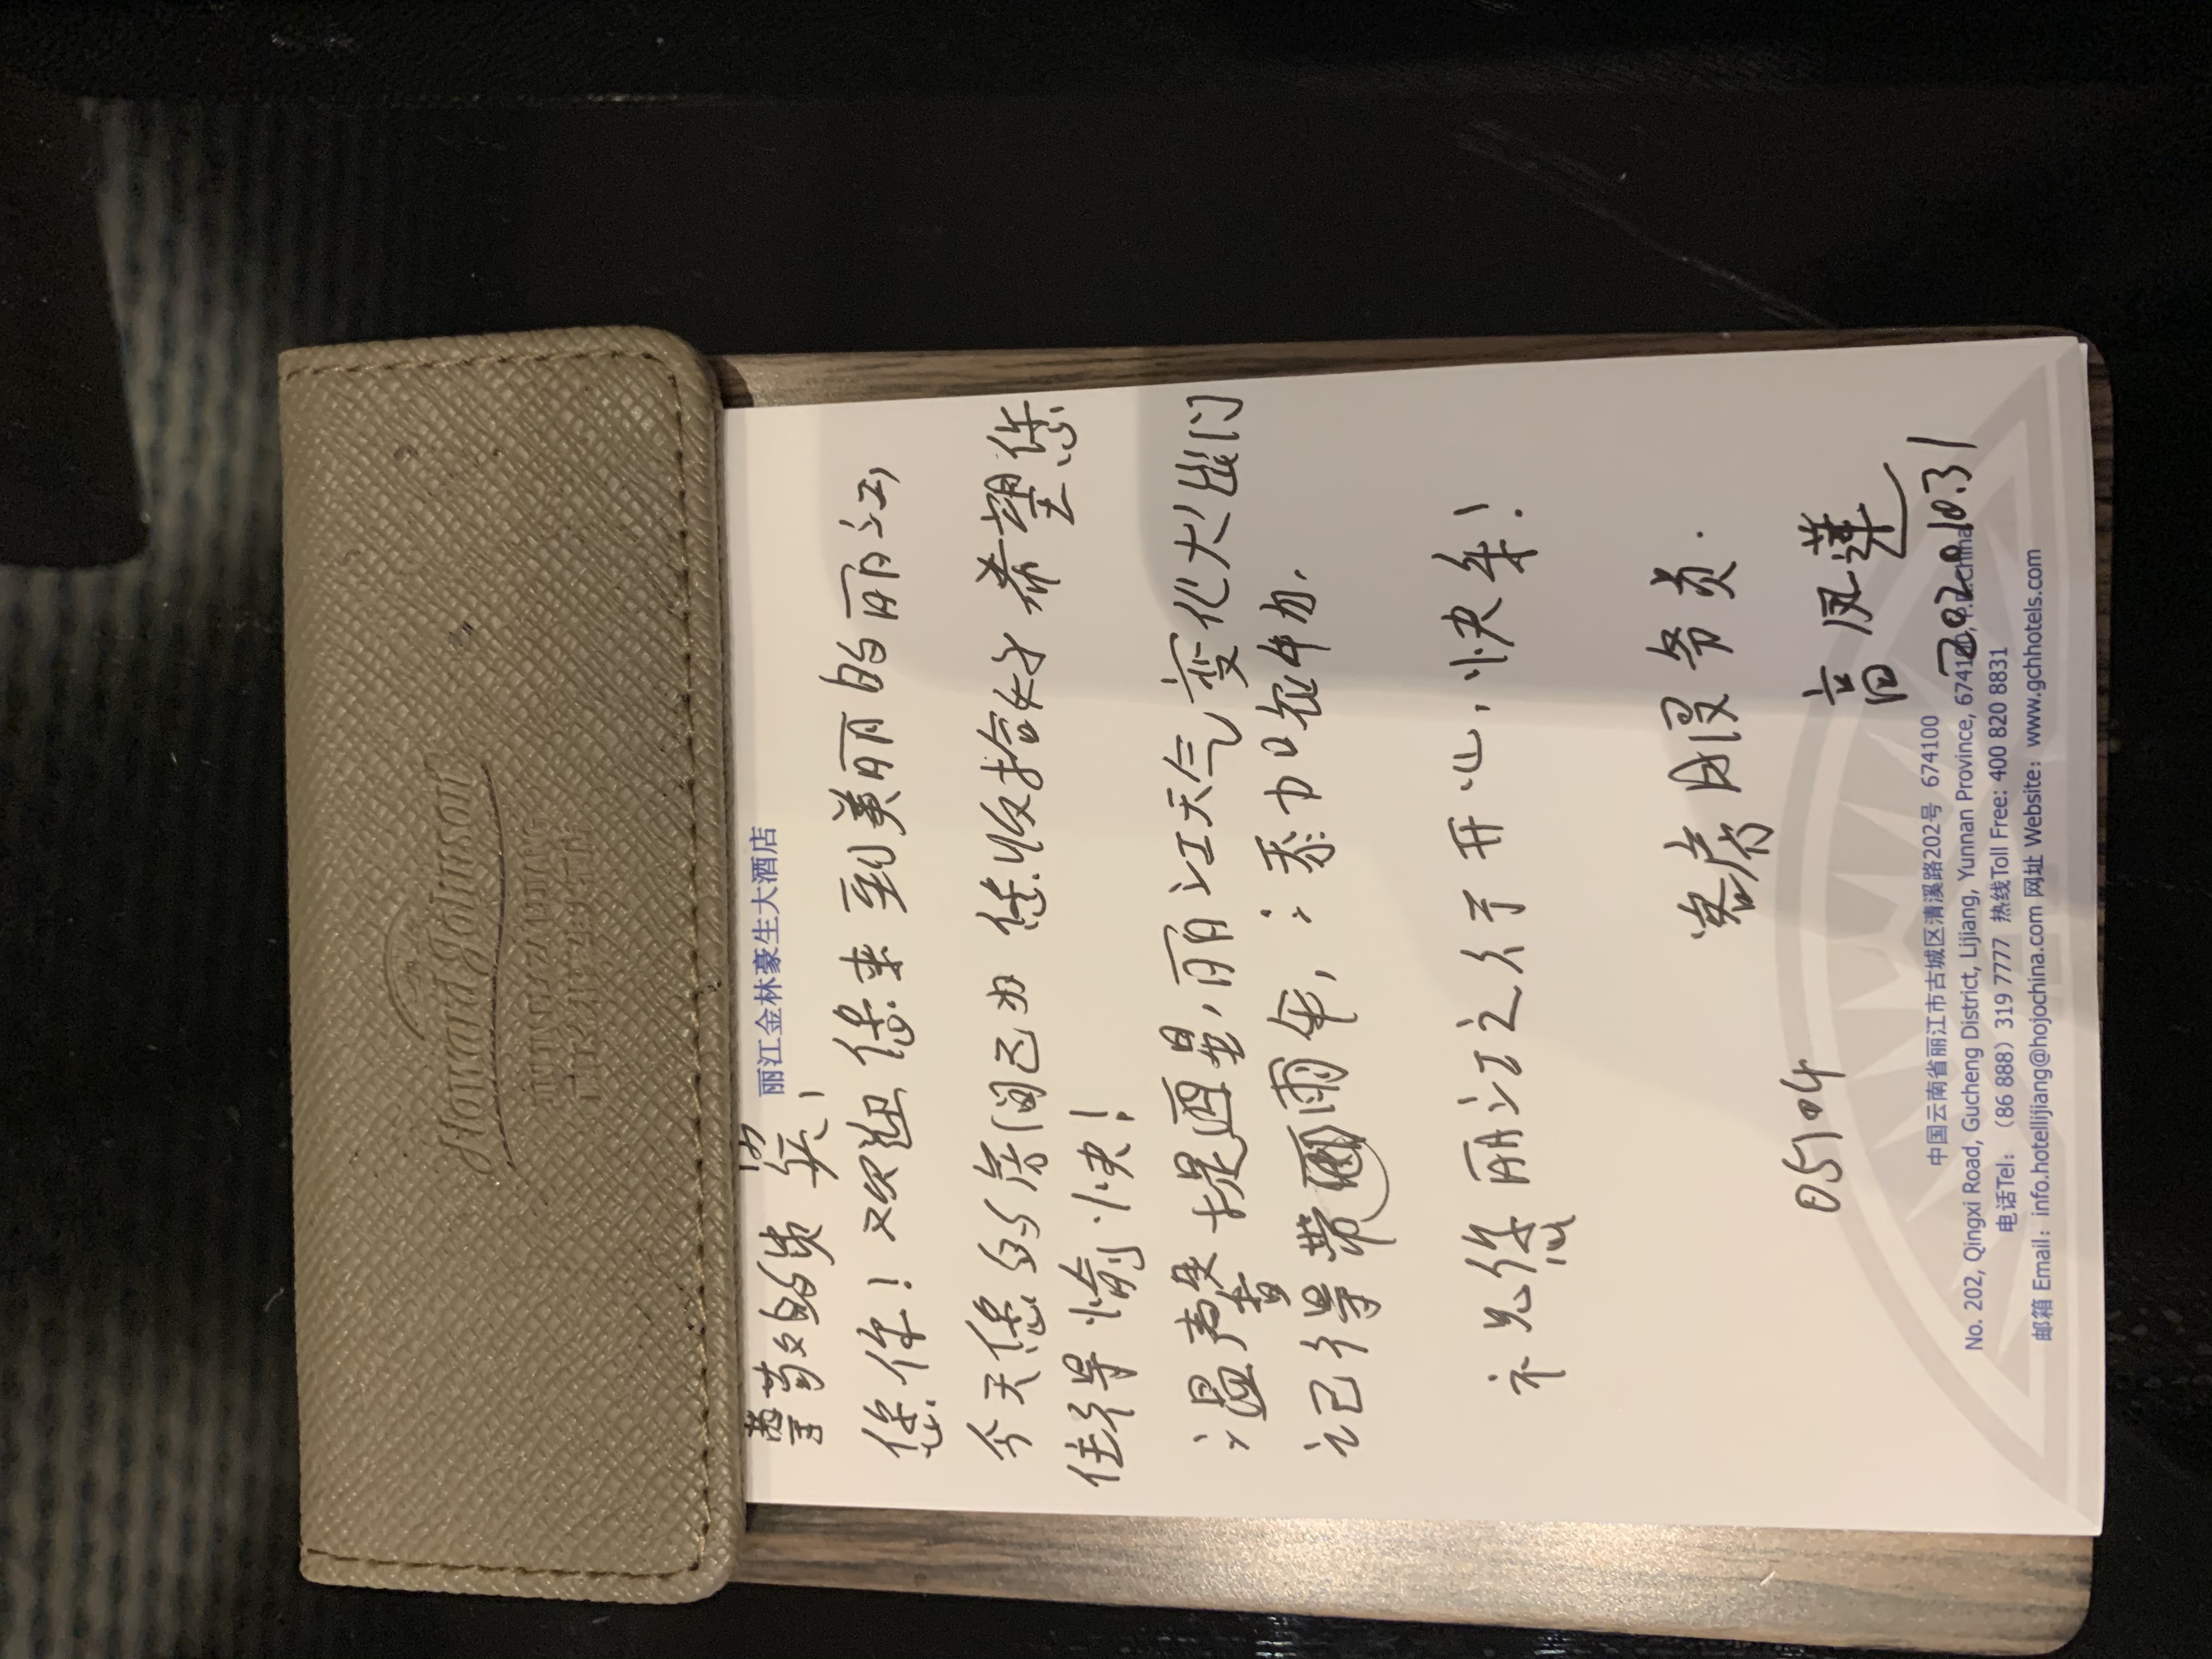 Howard Johnson
丽江金林豪生大酒店
尊敬的贵宾,
您你!欢迎您来到美丽的丽江,
今天您的房间已为您收拾好希望您
住得愉快!
温馨提醒,丽江天气变化大出门
记得带雨伞,添加衣物.
祝您丽江之行开心,快乐!
客房服务员.
05104
高凤莲
2020.10.31
中国云南省丽江市古城区清溪路202号 674100
No. 202, Qingxi Road, Gucheng District, Lijiang, Yunnan Province, 674100, P.R.China
电话Tel:(86 888)319 7777 热线Toll Free: 400 820 8831
邮箱 Email:info.hotellijiang@hojochina.com 网址 Website:www.gchhotels.com